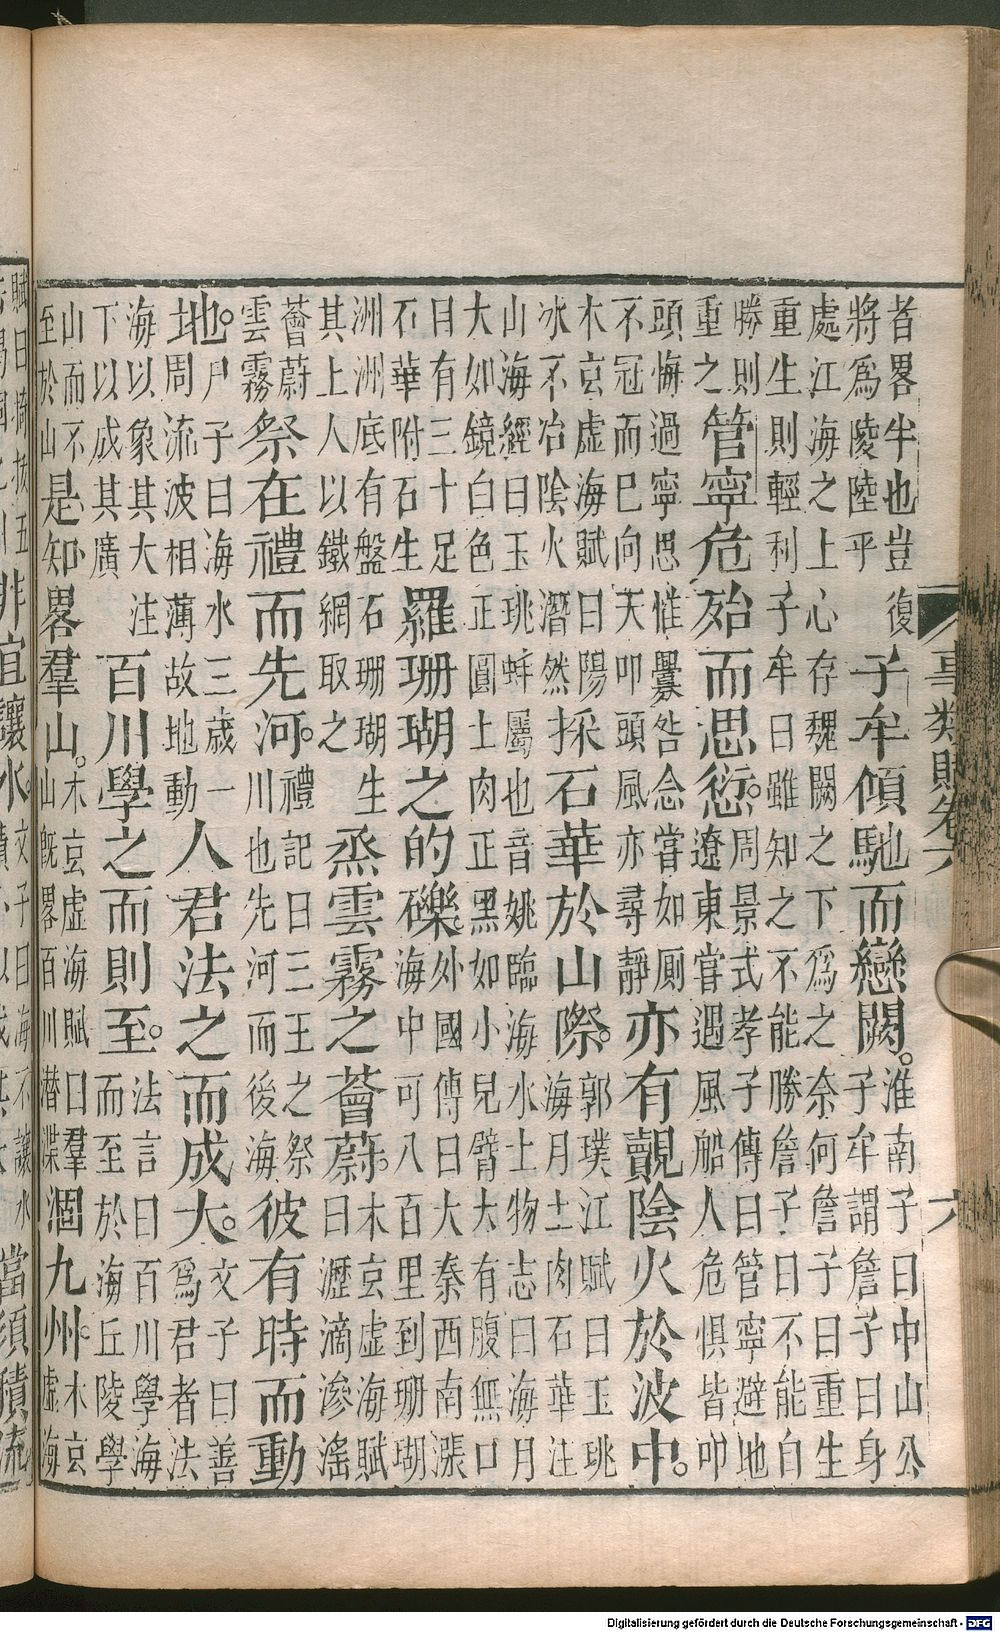 者畧牛也豈復
將爲陵陸平
子牟傾馳而戀闕。
淮南子曰中山公
子牟謂詹子曰身
處江海之上心存魏闕之下爲之奈何詹子曰重生
重生則輕利子牟曰雖知之不能勝詹子曰不能自
勝則
重之
管寧危殆而思愆。
周景式孝子傳曰管寧避地
遼東嘗遇風船人危懼皆叩
頭悔過寧思惟釁咎念嘗如厠
不冠而已向天叩頭風亦尋靜
亦有覿陰火於波中。
木玄虛海賦曰陽
冰不冶陰火潛然
採石華於山際。
郭璞江賦曰玉珧
海月土肉石華注
山海經曰玉珧蚌屬也音姚臨海水土物志曰海月
大如鏡白色正圓土肉正黑如小兒臂大有腹無口
目有三十足
石華附石生
羅珊瑚之的礫。
外國傳曰大秦西南漲
海中可八百里到珊瑚
洲洲底有盤石珊瑚生
其上人以鐵網取之
烝雲霧之薈蔚。
木玄虛海賦
曰瀝滴滲滛
薈蔚
雲霧
祭在禮而先河。
禮記曰三王之祭
川也先河而後海
彼有時而動
地。
尸子曰海水三歲一
周流波相薄故地動
人君法之而成大。
文子曰善
爲君者法
海以象其大注
下以成其廣
百川學之而則至。
法言曰百川學海
而至於海丘陵學
山而不
至於山
是知畧羣山。
木玄虛海賦曰羣
山旣畧百川潜渫
涸九州。
木玄
虛海
事類賦卷六
六
賦曰掎拔五
非宜讓水。
文子曰海不讓水
當須積流
Digitalisierung gefördert durch die Deutsche Forschungsgemeinschaft - DFG